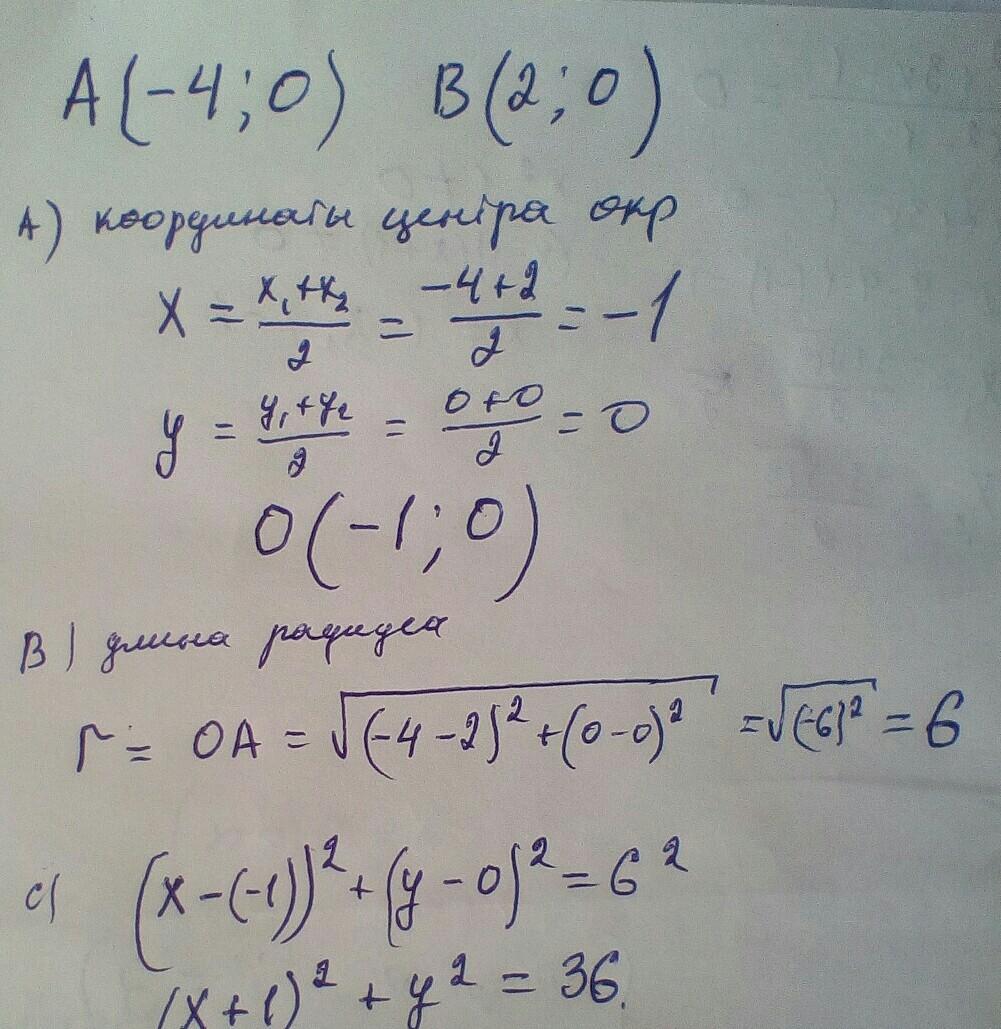 A(-4;0) B(2;0)
A) координаты центра окр
x = (x₁+x₂)/2 = (-4+2)/2 = -1
y = (y₁+y₂)/2 = (0+0)/2 = 0
O(-1;0)
B) длина радиуса
r = OA = √((-4-2)²+(0-0)²) = √(-6)² = 6
c) (x-(-1))²+(y-0)²=6²
(x+1)²+y²=36.